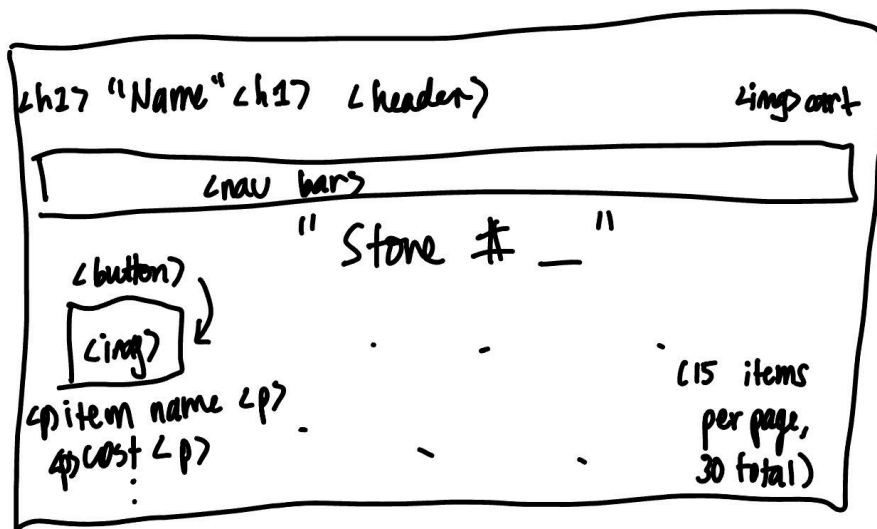 <h1> "Name" <h1> <header> <img> cart
<nav bar>
"Store # _"
<button>
<img>
<p> item name <p>
<p> cost <p>
(15 items
per page,
30 total)